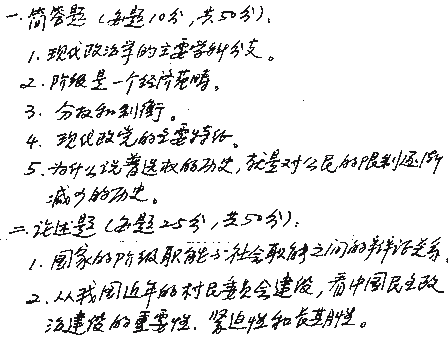 一.简答题(每题10分,共50分):
1.现代政治学的主要学科分支。
2.阶级是一个经济范畴。
3.分权和制衡。
4.现代政党的主要特征。
5.为什么说普选权的历史,就是对公民的限制逐渐
减少的历史。
二.论述题(每题25分,共50分):
1.国家的阶级职能与社会职能之间的辩证关系.
2.从我国近年的村民委员会建设,看中国民主政
治建设的重要性、紧迫性和长期性。